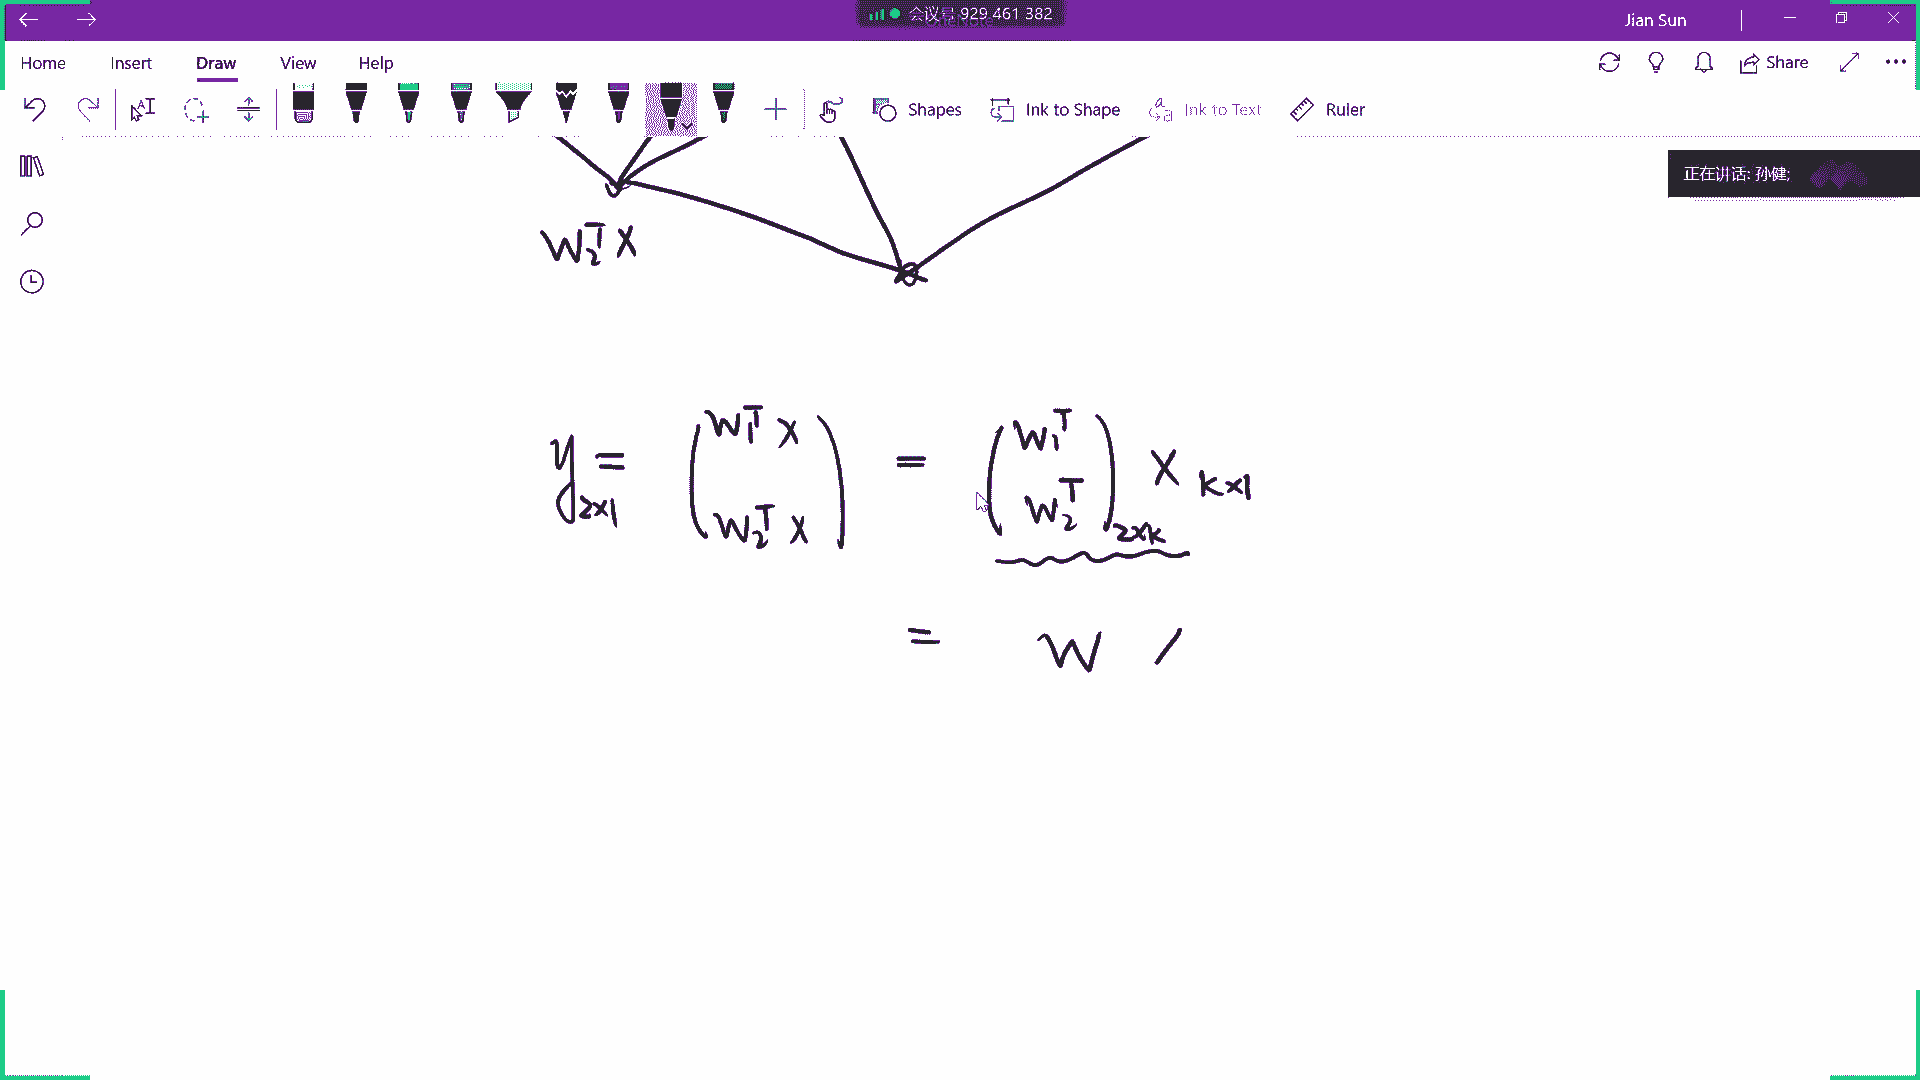 会议号 929 461 382
Jian Sun
Home Insert Draw View Help
Share
Shapes Ink to Shape Ink to Text Ruler
正在讲话: 孙健;
W₂ᵀ X
y₂ₓ₁ = (W₁ᵀ X W₂ᵀ X) = (W₁ᵀ W₂ᵀ)₂ₓₖ X ₖₓ₁
= W